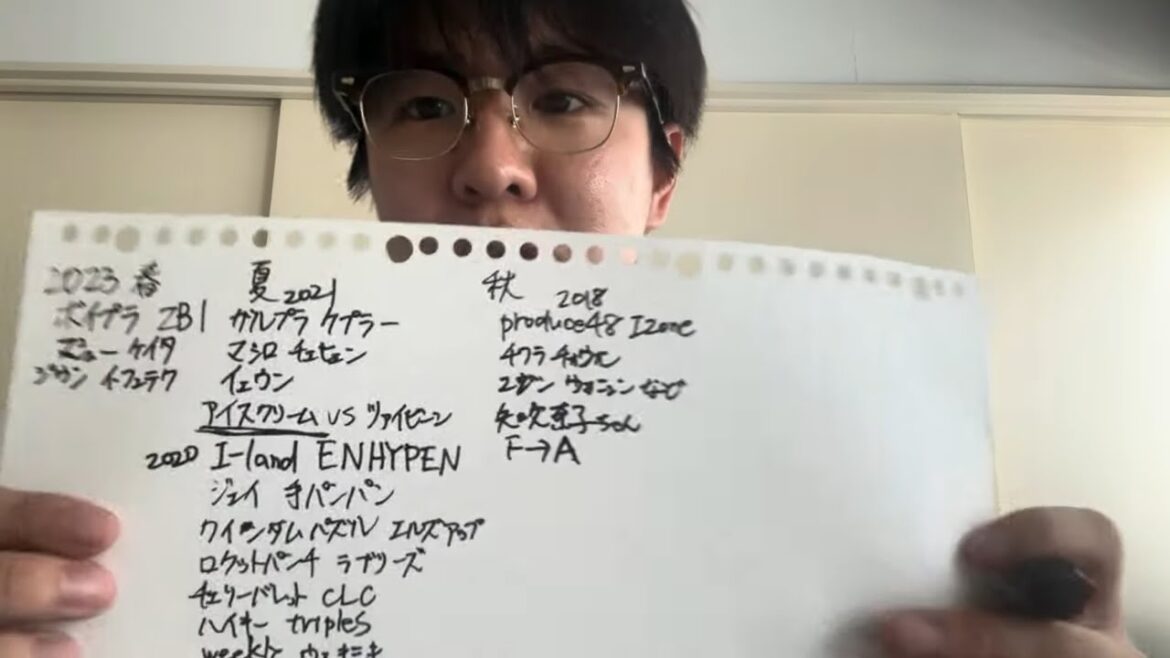 2023 春
ボイプラ ZB1
マシュー ケイタ
ジウン イ・フェテク
夏 2021
ガルプラ ケプラー
マシロ チェヒョン
イェウン
アイスクリーム VS ツァイビーン
2020 I-land ENHYPEN
ジェイ 手パンパン
クイーンダムパズル エルズアップ
ロケットパンチ ラブリーズ
チェリーバレット CLC
ハイキー tripleS
weekly
秋 2018
produce48 Izone
サクラ チェウォン
ユジン ウォニョン なこ
矢吹奈子ちゃん
F→A